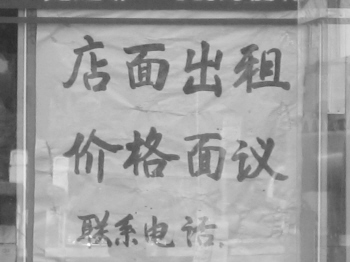 店面出租
价格面议
联系电话